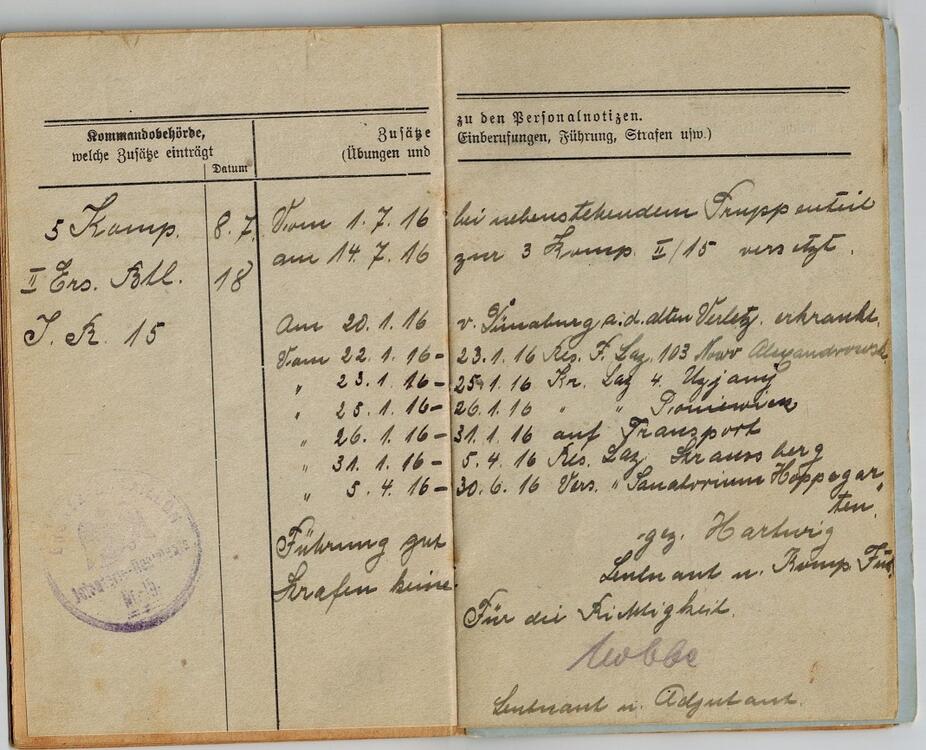 Kommandobehörde,
welche Zusätze einträgt
Datum
Zusätze
(Übungen und
zu den Personalnotizen.
Einberufungen, Führung, Strafen usw.)
5 Komp. 8.7. Vom 1.7.16 bei nebenstehendem Truppenteil
am 14.7.16 zur 3 Komp. II/15 versetzt.
II Ers. Btl. 18
J. R. 15
Am 20.1.16 v. Dünaburg a.d. alten Verletz. erkrankt.
Vom 22.1.16 - 23.1.16 Res. F. Laz. 103 Nowo Alexandrowsk.
" 23.1.16 - 25.1.16 Kr. Laz 4. Uzjany
" 25.1.16 - 26.1.16 " " Poniewiea
" 26.1.16 - 31.1.16 auf Transport
" 31.1.16 - 5.4.16 Res. Laz. Straussberg
" 5.4.16 - 30.6.16 Vers. "Sanatorium Hoppegar
ten."
Führung gut
Strafen keine.
gez. Hartwig
Leutnant u. Komp. Füh.
Für die Richtigkeit.
Leutnant u. Adjutant.
Infanterie-Regiments
Nr. 15.